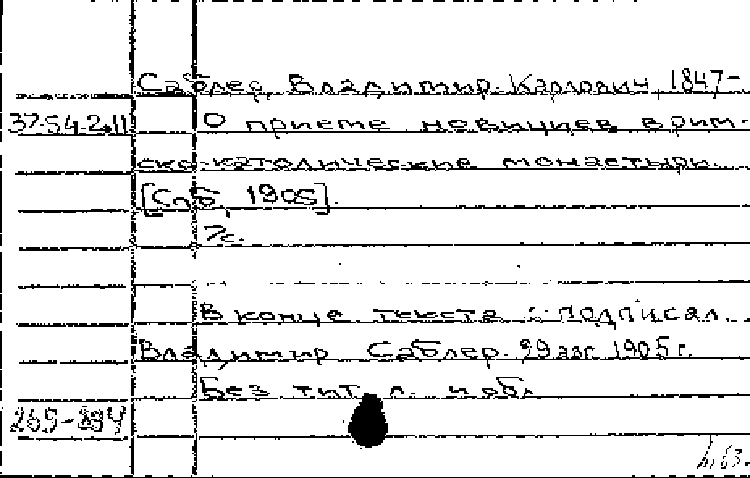 Саблер, Владимир Карлович, 1847-
37-54-2.11 О приеме новициев в рим-
ско-католические монастыри.
[Спб, 1905].
7с.
В конце текста: подписал
Владимир Саблер. 29 авг 1905 г.
Без тит. л. и обл.
269-894